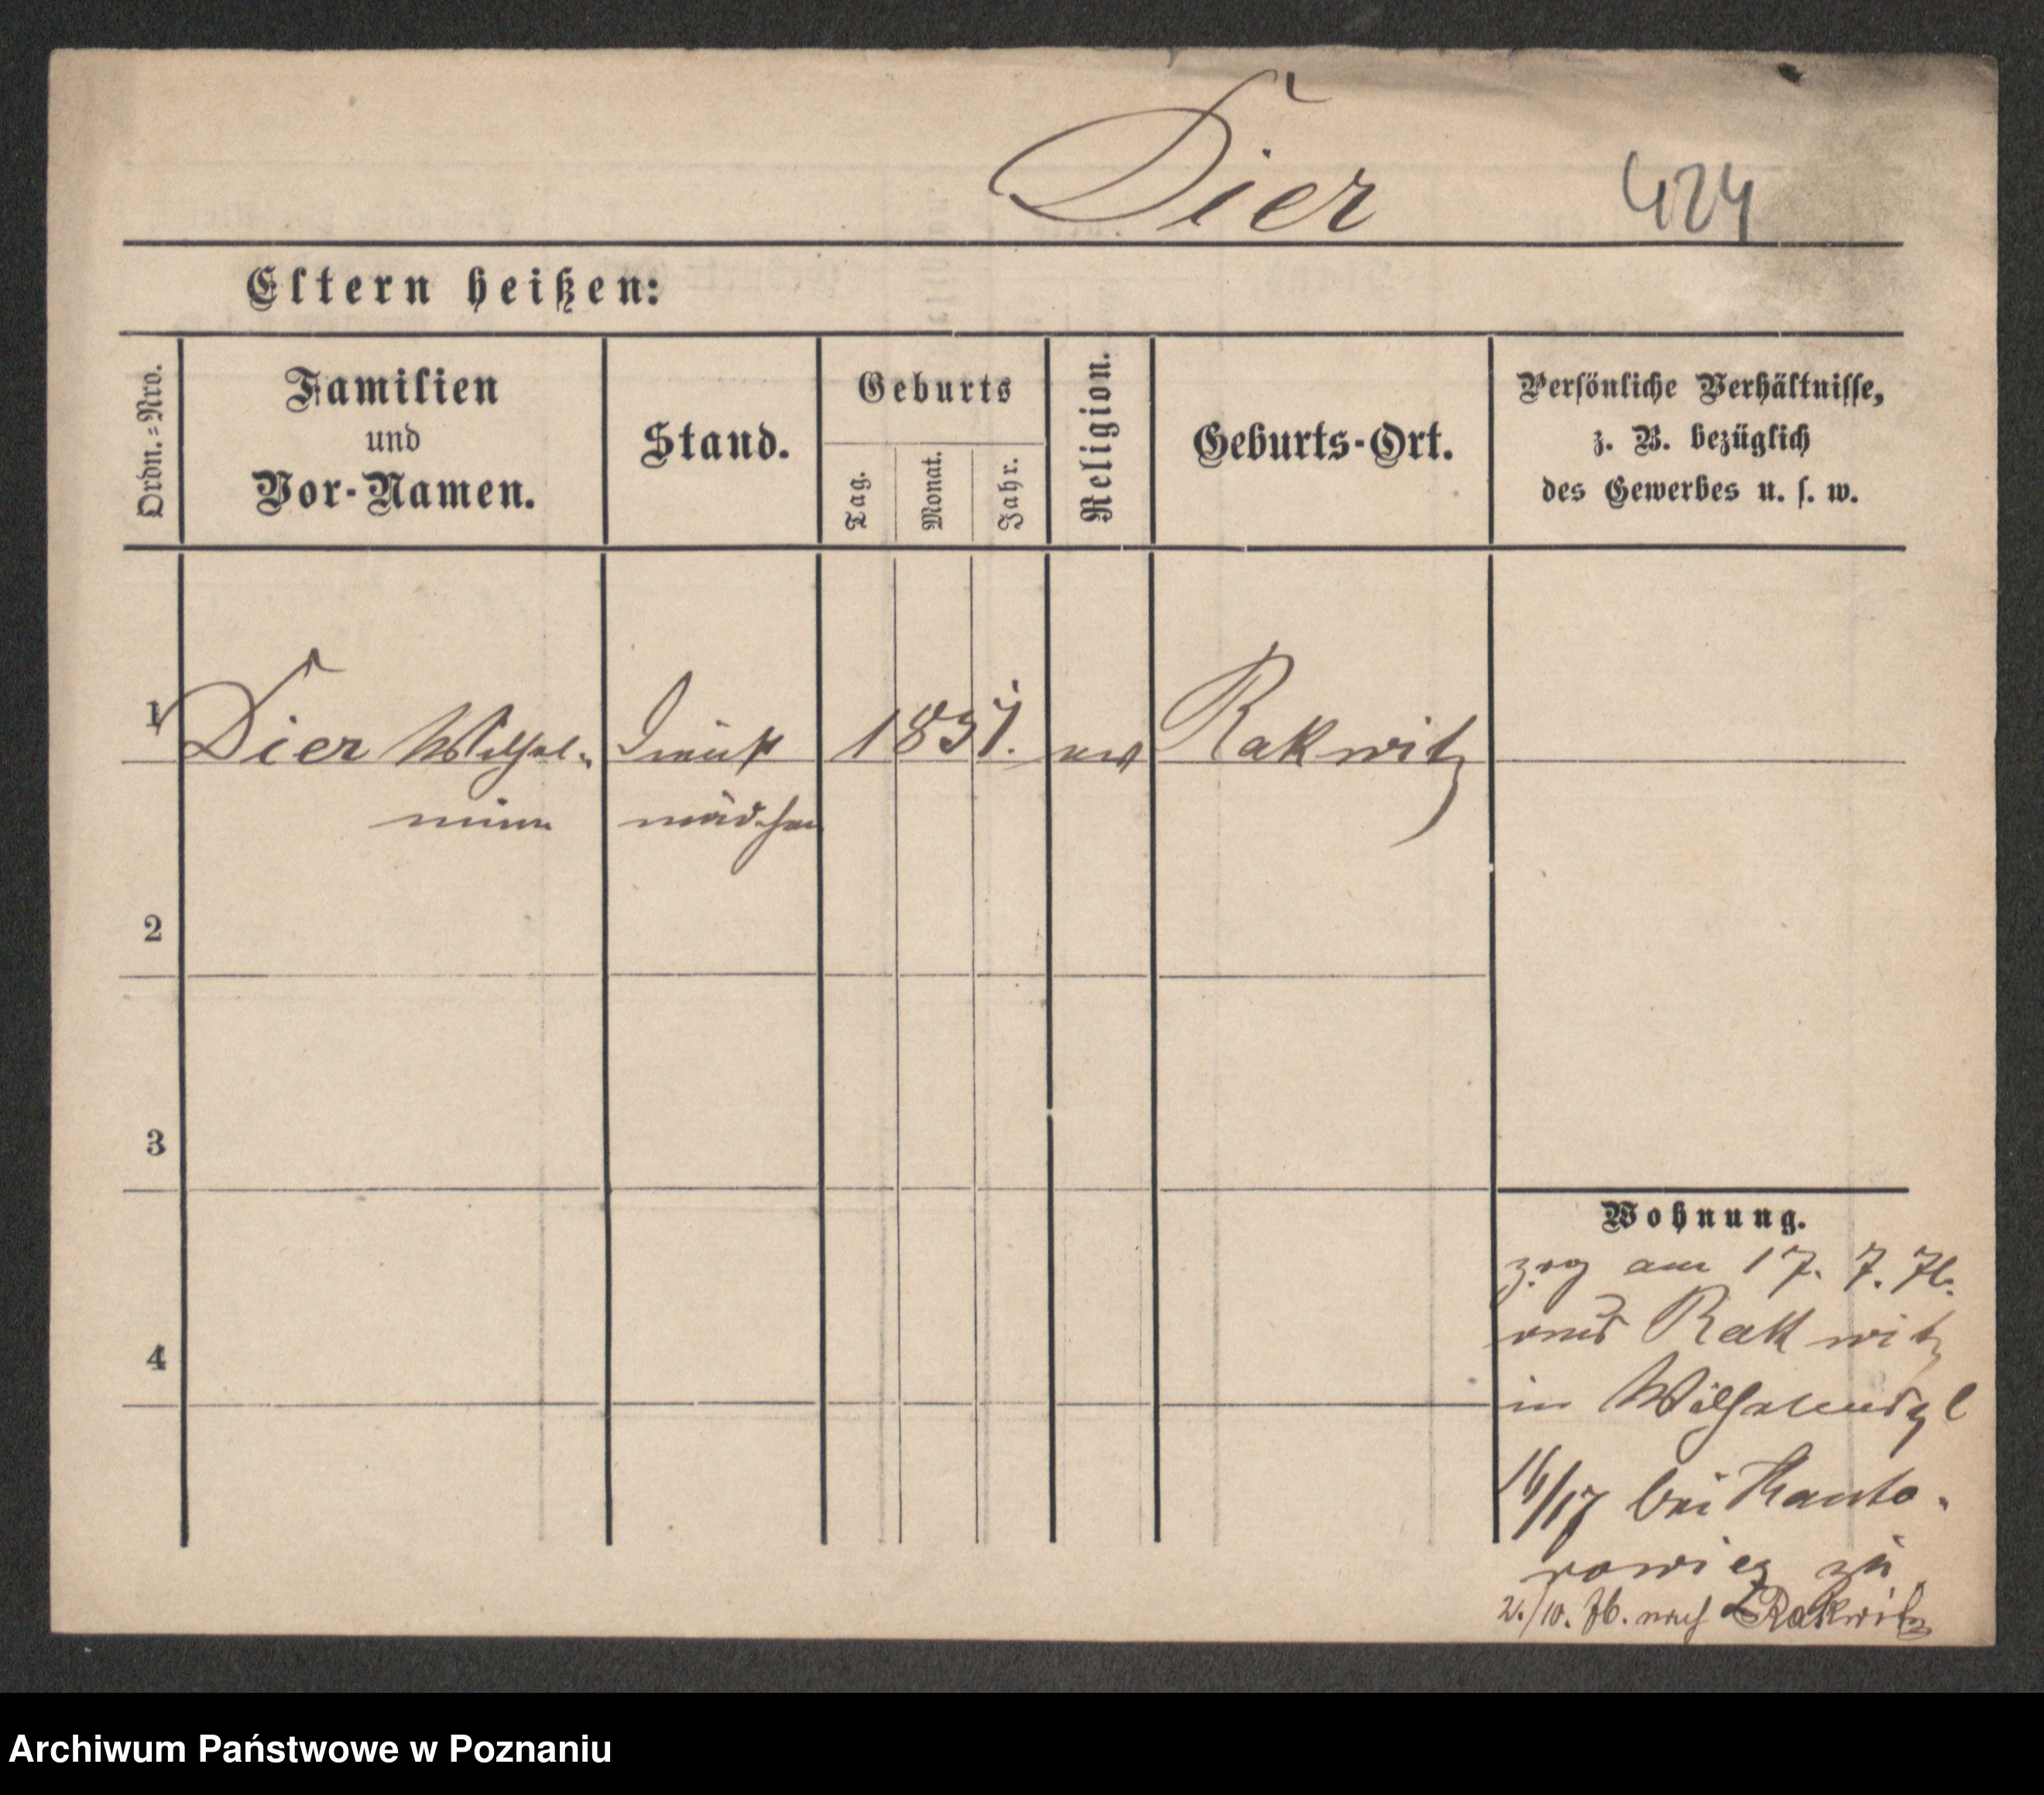 Dier 424
Eltern heißen:
Ordn.=Nro.
Familien
und
Vor-Namen.
Stand.
Geburts
Tag.
Monat.
Jahr.
Religion.
Geburts-Ort.
Persönliche Verhältnisse,
z. B. bezüglich
des Gewerbes u. s. w.
1 Dier Wilhel- Dienst 1857. ev Rakwitz
mine mädchen
2
3
4
Wohnung.
zog am 17. 7. 76.
aus Rakwitz
in Wilhelmspl
16/17 bei Kanto-
rowicz zu
2./10. 76. nach Rakwitz
Archiwum Państwowe w Poznaniu